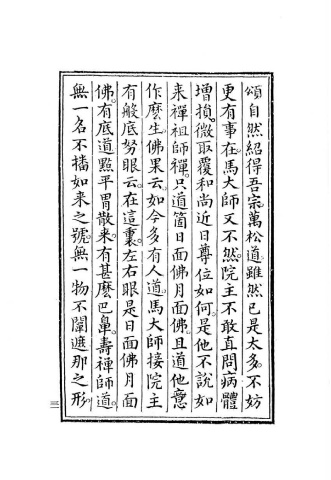 頌自然紹得吾宗萬松道雖然已是太多不妨
更有事在馬大師又不然院主不敢直問病體
增損微取覆和尚近日尊位如何是他不說如
来禪祖師禪只道箇日面佛月面佛且道他意
作麽生佛果云如今多有人道馬大師接院主
有般底努眼云在這裏左右眼是日面佛月面
佛有底道㸃平胃散来有甚麽巴鼻壽禪師道
無一名不播如来之號無一物不闡遮那之形
三